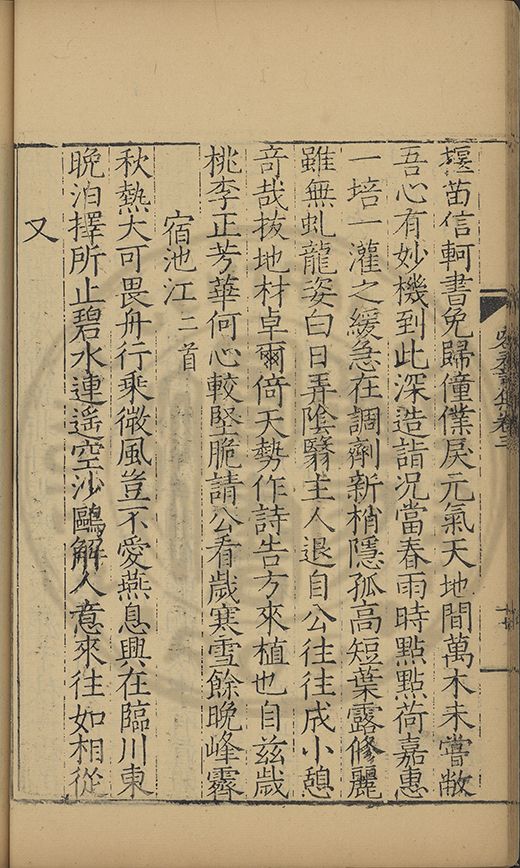 堰苗信軻書免歸僮僕戾元氣天地間萬木未嘗敝
吾心有妙機到此深造詣況當春雨時點點荷嘉惠
一培一灌之緩急在調劑新梢隱孤高短葉露修麗
雖無虬龍姿白日弄陰翳主人退自公往往成小憩
竒哉拔地材卓爾倚天勢作詩告方來植也自兹歲
桃李正芳華何心較堅脆請公看歲寒雪餘晚峰霽
宿池江二首
秋熱大可畏舟行乘微風豈不愛燕息興在臨川東
晚泊擇所止碧水連遥空沙鷗解人意來往如相從
又
卷三